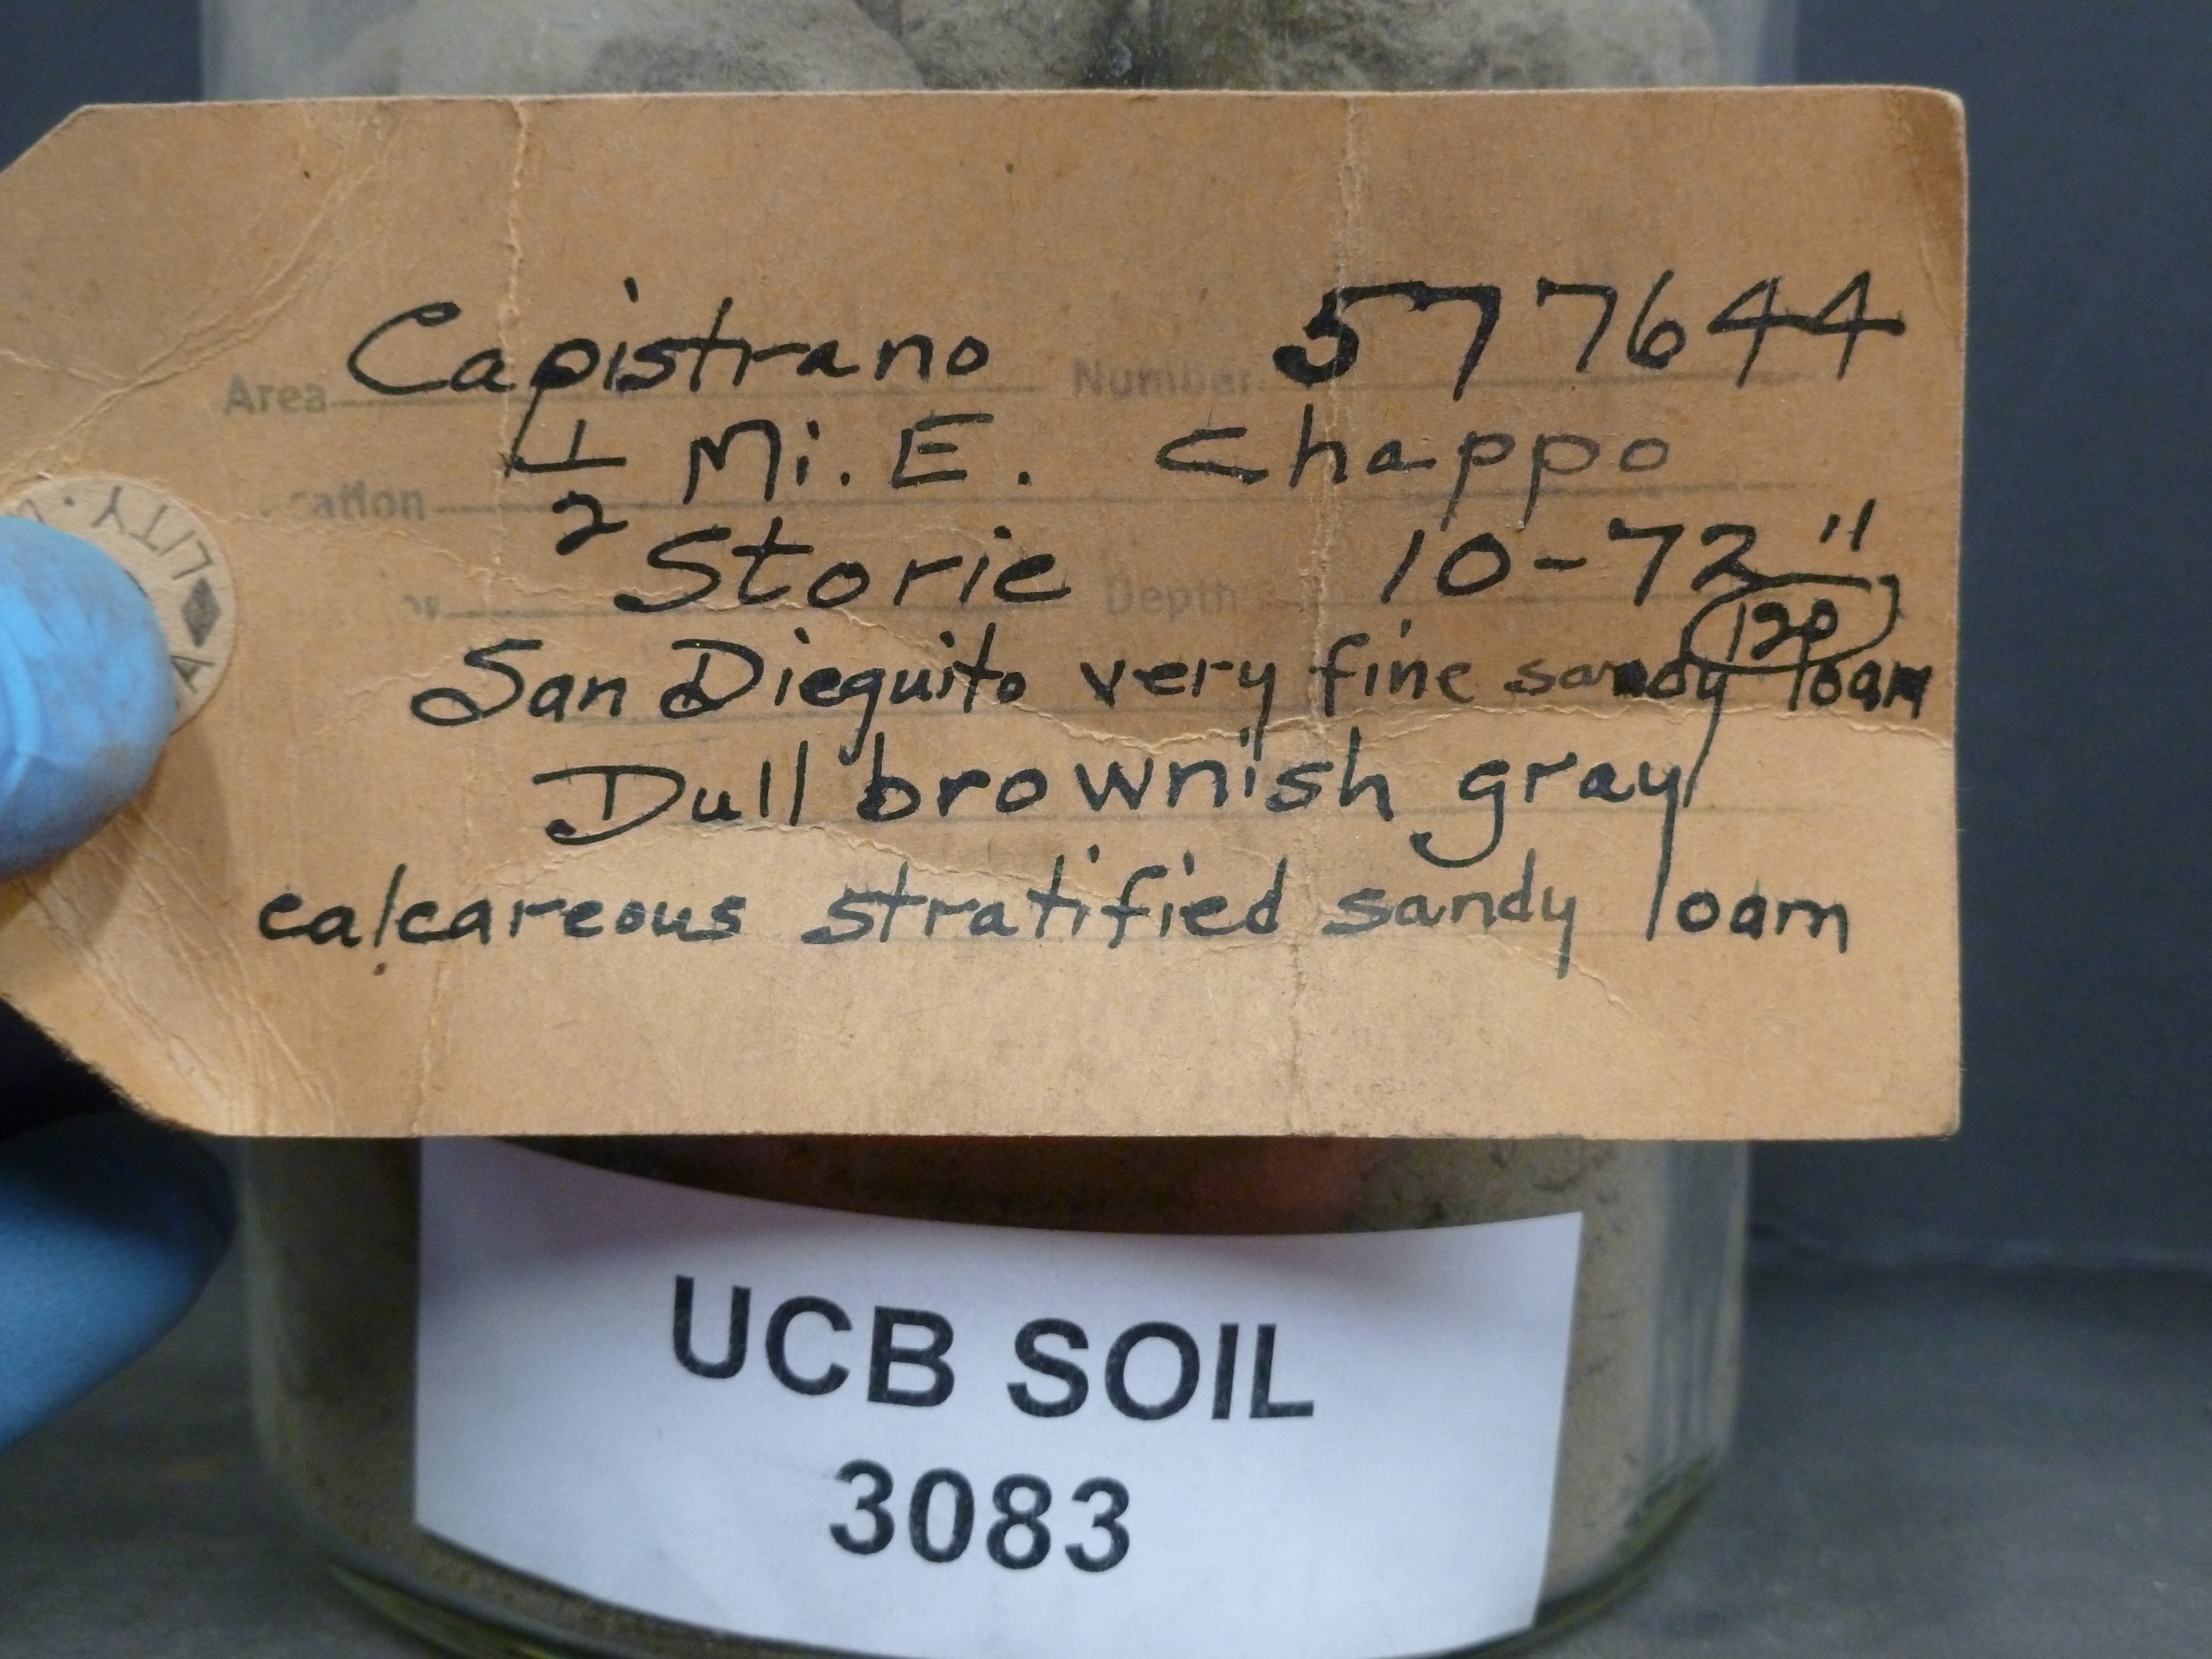 Area Capistrano Number 577644
cation 1/2 Mi. E. Chappo
Storie Depth 10-72"
120
San Dieguito very fine sandy loam
Dull brownish gray
calcareous stratified sandy loam
UCB SOIL
3083